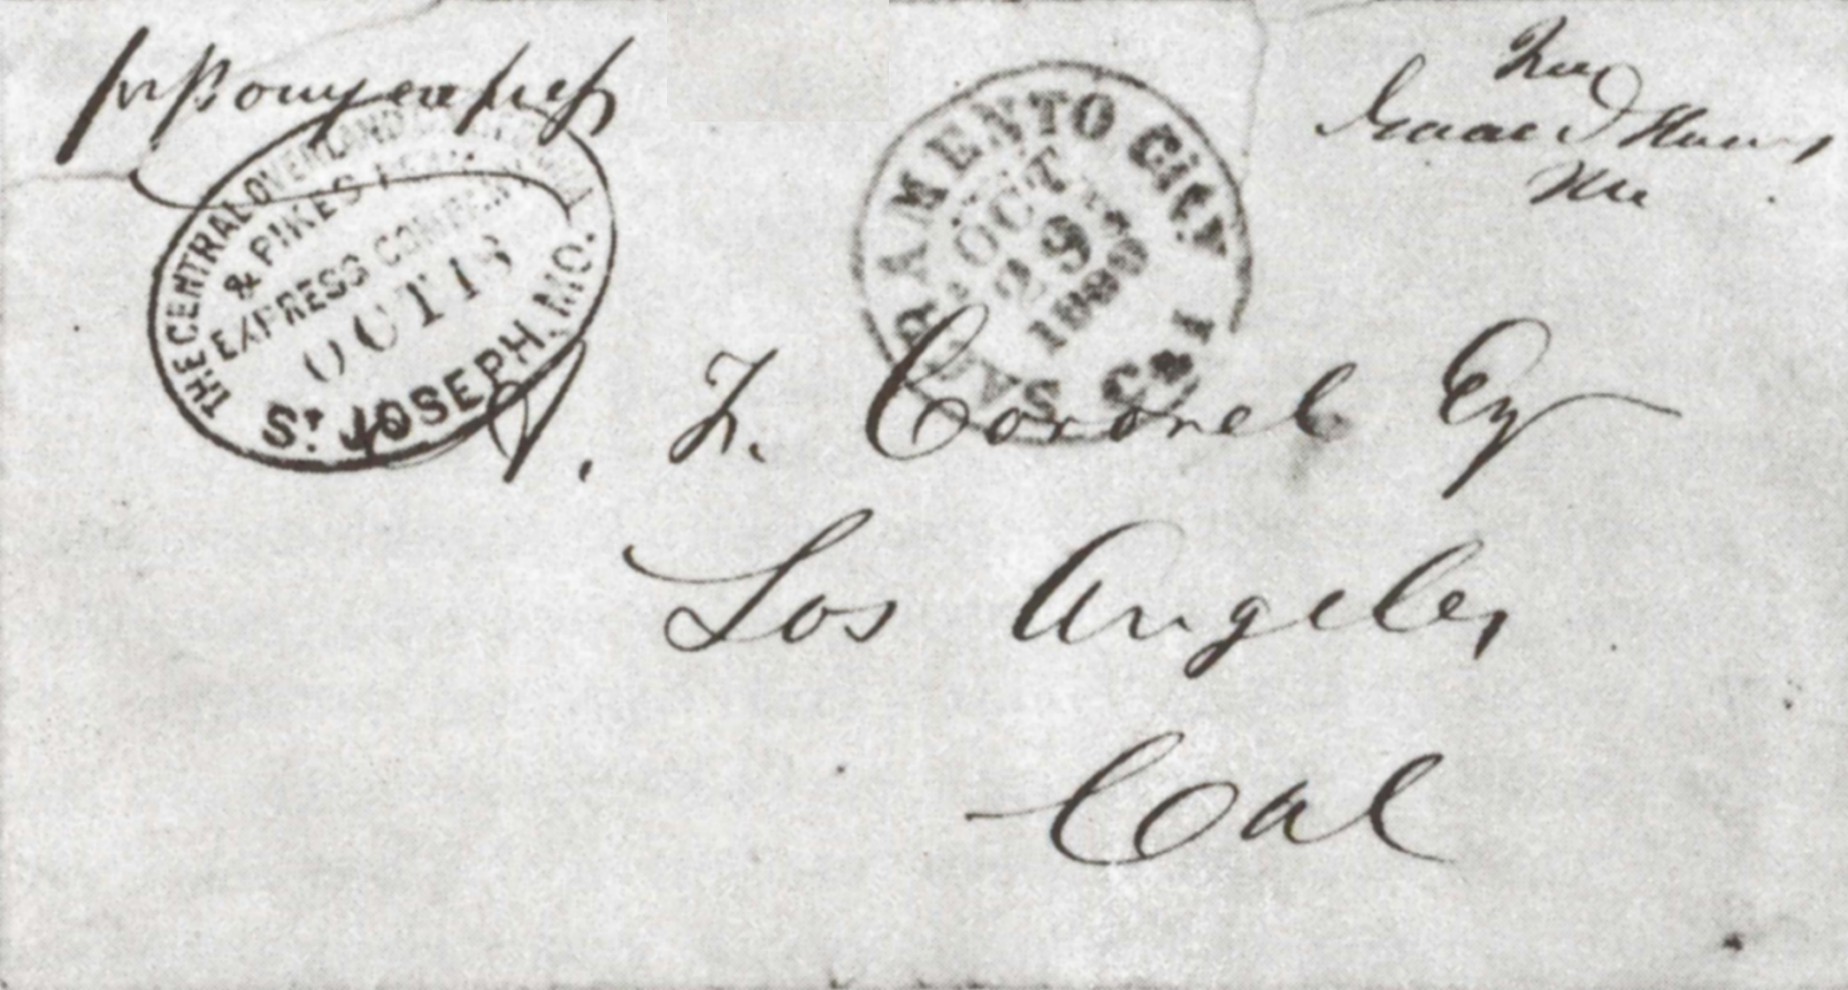 pr Pony express
THE CENTRAL OVERLAND CALIFORNIA
& PIKES PEAK
EXPRESS COMPANY
OCT 18
ST. JOSEPH, MO.
SACRAMENTO CITY
OCT
29
1860
CAL
Free
Mc
F. Coronel Esq
Los Angeles
Cal